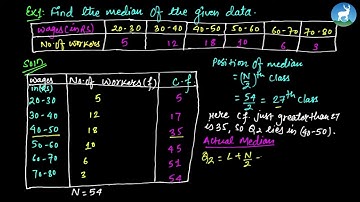 Ex1: Find the median of the given data.
Wages (in Rs) 20-30 30-40 40-50 50-60 60-70 70-80
No.of workers 5 12 18 10 6 3
Soln
Wages in(RS) No.of workers (f) C.f
20-30 5 5
30-40 12 17
40-50 18 35
50-60 10 45
60-70 6 51
70-80 3 54
N = 54
Position of median
= (N/2)th class
= 54/2 = 27th class
Here C.f just greater than 27
is 35, so Q2 lies in (40-50).
Actual Median
Q2 = L + N/2 -